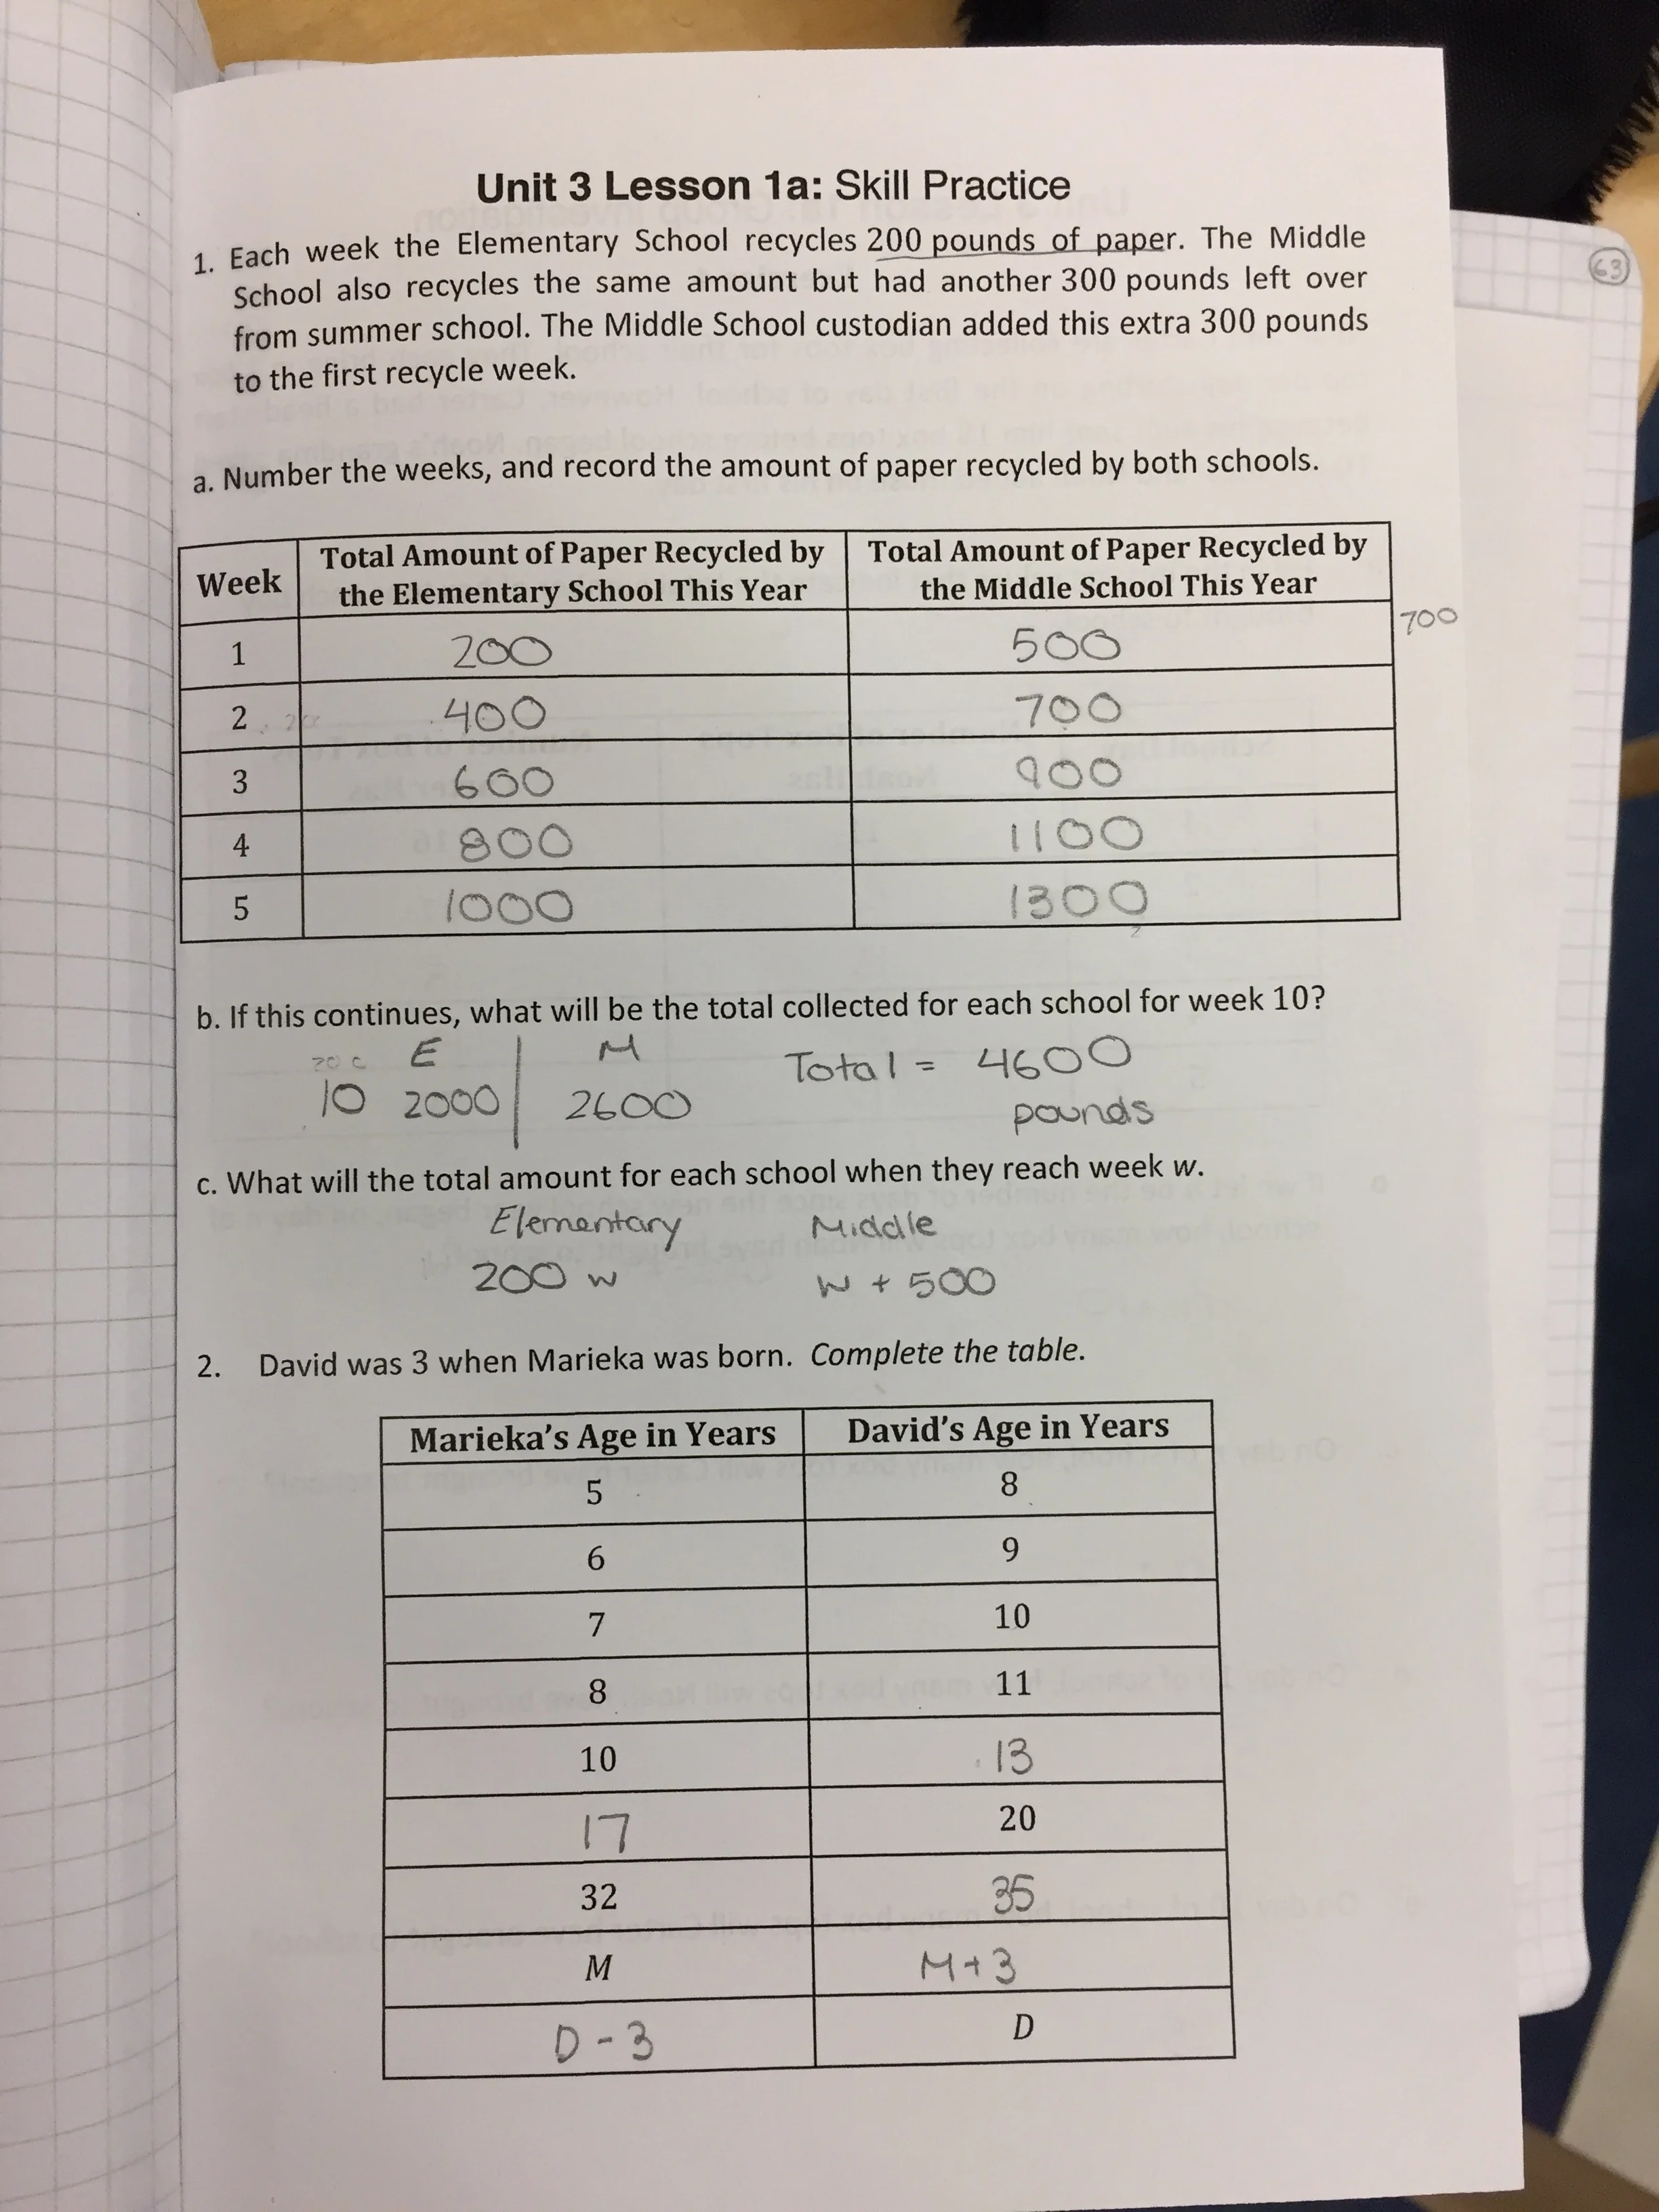 63
Unit 3 Lesson 1a: Skill Practice
1. Each week the Elementary School recycles 200 pounds of paper. The Middle
School also recycles the same amount but had another 300 pounds left over
from summer school. The Middle School custodian added this extra 300 pounds
to the first recycle week.
a. Number the weeks, and record the amount of paper recycled by both schools.
Week Total Amount of Paper Recycled by Total Amount of Paper Recycled by
the Elementary School This Year the Middle School This Year
1 200 500 700
2 400 700
3 600 900
4 800 1100
5 1000 1300
b. If this continues, what will be the total collected for each school for week 10?
E M Total = 4600
10 2000 2600 pounds
c. What will the total amount for each school when they reach week w.
Elementary Middle
200 w w + 500
2. David was 3 when Marieka was born. Complete the table.
Marieka's Age in Years David's Age in Years
5 8
6 9
7 10
8 11
10 13
17 20
32 35
M M+3
D - 3 D